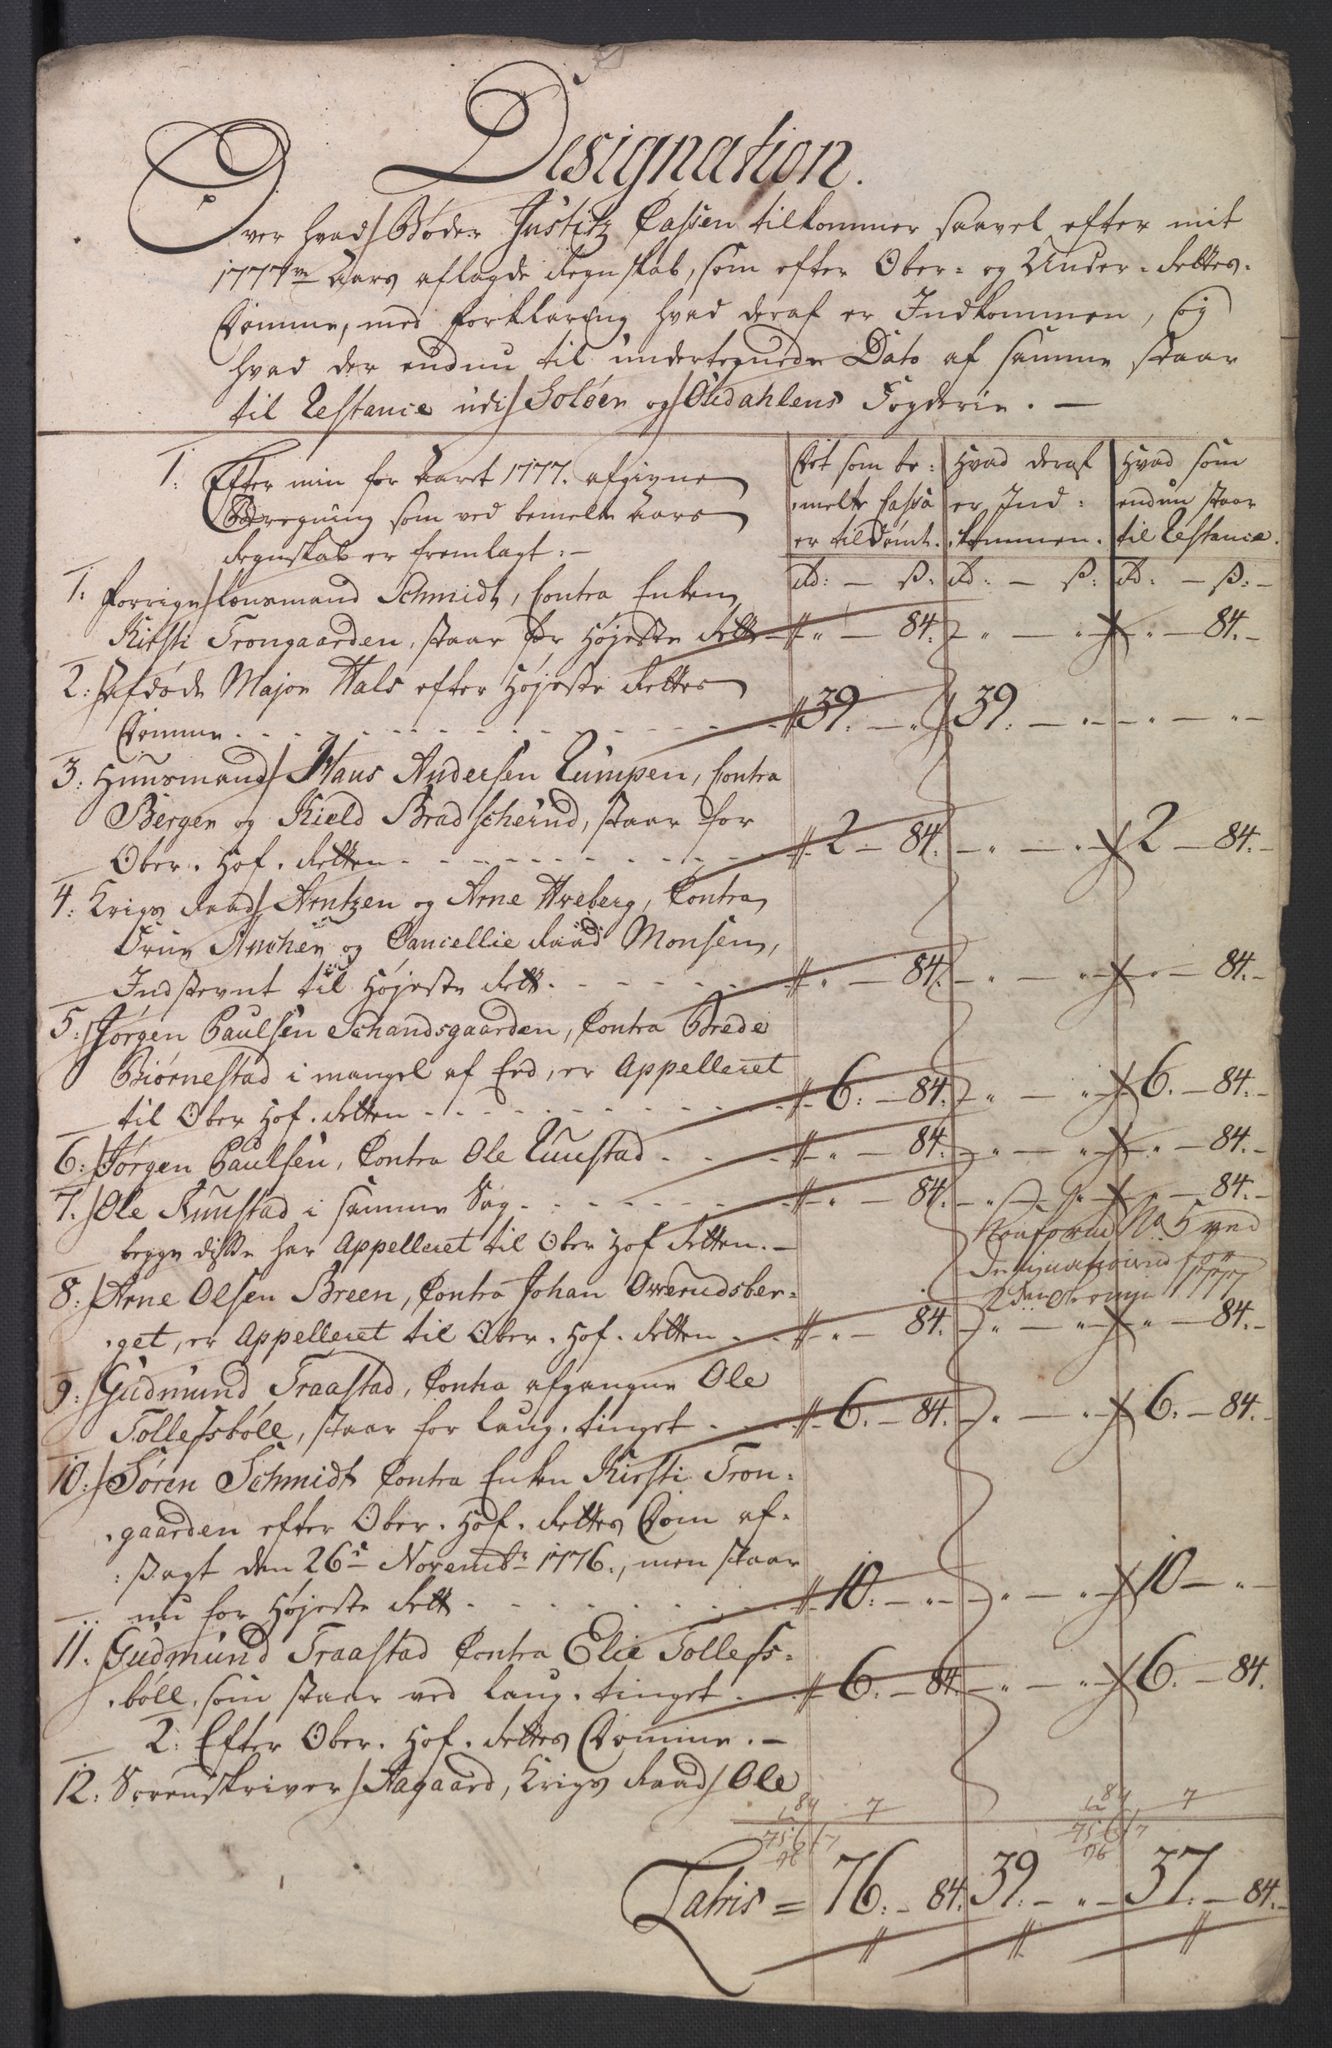 Designation.
Over hvad Bøder Justitz Cassen tilkommer saavel efter mit
1777de Aars aflagde Regnskab, som efter Ober- og Under-Rettes-
Domme, med forklaring hvad deraf er Indkommen, og
hvad der endnu til undertegnede Dato af samme staar
til Restance udi Soløer og Oudahlens Fogderie. —
1: Efter min for Aaret 1777. afgivne
Beregning som ved bemelte Aars
Regnskab er fremlagt: —
Det som be-
melte Cassa
er tildømt.
Hvad deraf
er Ind-
kommen.
Hvad som
endnu staar
til Restance.
Rd: — ß: Rd: — ß: Rd: — ß: —
1: Forrige Lensmand Schmidt, Contra Enken
Kirsti Trongaarden, staar for Højeste Rett — " — 84. — " — " — " — 84. —
2: Afdøde Major Hals efter Højeste Rettes
Domme . . . 39. — " 39: — " — " — " —
3: Huusmand Hans Andersen Rumpen, Contra
Bergen og Kield Bradscherud, staar for
Ober. Hof. Retten . . . 2 — 84. — " — " — 2 — 84. —
4: Krigs Raad Arntzen og Arne Hveberg, Contra
Frue Anchen og Cancellie Raad Monsen,
Indstevnt til Højeste Rett . . . " — 84. — " — " — " — 84. —
5: Jørgen Paulsen Schandsgaarden, Contra Brede
Biørnestad i mangel af Eed, er Appelleret
til Ober Hof. Retten . . . 6: — 84. — " — " — 6. — 84. —
6: Jørgen Paulsen, Contra Ole Ruustad . . . " — 84. — " — " — " — 84. —
7. Ole Ruustad i samme Sag . . . " — 84. — " — " — " — 84. —
begge disse har Appelleret til Ober Hof Retten. —
No 5 ved
Designationen for
1777
8: Arne Olsen Breen, Contra Johan Overudsber-
get, er Appelleret til Ober. Hof. Retten . . . " — 84. — " — " — " — 84. —
9: Gudmund Traastad, Contra afgangne Ole
Tollefsböll, staar for Laug. tinget . . . 6. — 84. — " — " — 6. — 84. —
10: Søren Schmidt Contra Enken Kirsti Tron-
gaarden efter Ober. Hof. Rettes Dom af-
sagt den 26de Novembr 1776., men staar
nu for Højeste Rett . . . 10: — " — " — " — 10 — " —
11. Gudmund Traastad Contra Elie Tollefs-
böll, som staar ved Laug. tinget . . . 6. — 84. — " — " — 6. — 84.
2: Efter Ober. Hof. Rettes Domme. —
12: Sorenskriver Aagaard, Krigs Raad Ole
84 7
756 7
96
84 7
756 7
96
Latris = 76. — 84. 39. — " — 37. — 84. —